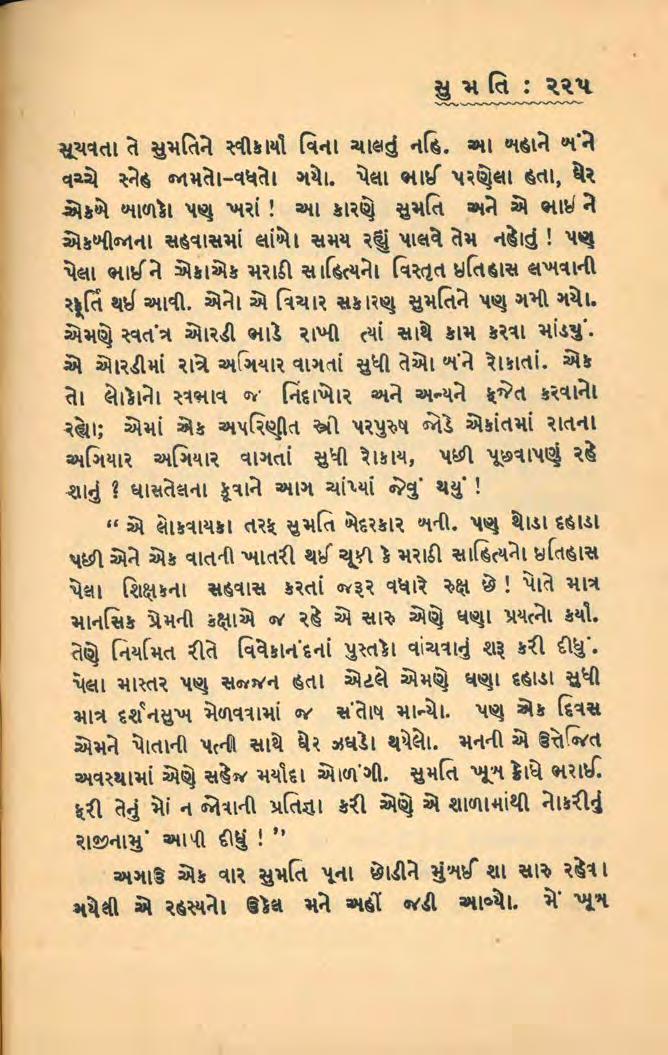 સુ મ તિ : ૨૨૫
સૂચવતા તે સુમતિને સ્વીકાર્યા વિના ચાલતું નહિ. આ બહાને બંને
વચ્ચે સ્નેહ જામતો-વધતો ગયો. પેલા ભાઈ પરણેલા હતા, ઘેર
એકબે બાળકો પણ ખરાં ! આ કારણે સુમતિ અને એ ભાઈ ને
એકબીજાના સહવાસમાં લાંબો સમય રહ્યું પાલવે તેમ નહોતું ! પણ
પેલા ભાઈ ને એકાએક મરાઠી સાહિત્યનો વિસ્તૃત ઇતિહાસ લખવાની
સ્ફૂર્તિ થઈ આવી. એનો એ વિચાર સકારણ સુમતિને પણ ગમી ગયો.
એમણે સ્વતંત્ર ઓરડી ભાડે રાખી ત્યાં સાથે કામ કરવા માંડ્યું.
એ ઓરડીમાં રાત્રે અગિયાર વાગતાં સુધી તેઓ બંને રોકાતાં. એક
તો લોકોનો સ્વભાવ જ નિંદાખોર અને અન્યને ફજેત કરવાનો
રહ્યો; એમાં એક અપરિણીત સ્ત્રી પરપુરુષ જોડે એકાંતમાં રાતના
અગિયાર અગિયાર વાગતાં સુધી રોકાય, પછી પૂછવાપણું રહે
શાનું ? ઘાસતેલના કૂવાને આગ ચાંપ્યાં જેવું થયું !
“ એ લોકવાયકા તરફ સુમતિ બેદરકાર બની. પણ થોડા દહાડા
પછી એને એક વાતની ખાતરી થઈ ચૂકી કે મરાઠી સાહિત્યનો ઇતિહાસ
પેલા શિક્ષકના સહવાસ કરતાં જરૂર વધારે રુક્ષ છે ! પોતે માત્ર
માનસિક પ્રેમની કક્ષાએ જ રહે એ સારુ એણે ઘણા પ્રયત્નો કર્યા.
તેણે નિયમિત રીતે વિવેકાનંદનાં પુસ્તકો વાંચવાનું શરૂ કરી દીધું.
પેલા માસ્તર પણ સજ્જન હતા એટલે એમણે ઘણા દહાડા સુધી
માત્ર દર્શનસુખ મેળવવામાં જ સંતોષ માન્યો. પણ એક દિવસ
એમને પોતાની પત્ની સાથે ઘેર ઝઘડો થયેલો. મનની એ ઉત્તેજિત
અવસ્થામાં એણે સહેજ મર્યાદા ઓળંગી. સુમતિ ખૂબ ક્રોધે ભરાઈ.
ફરી તેનું મોં ન જોવાની પ્રતિજ્ઞા કરી એણે એ શાળામાંથી નોકરીનું
રાજીનામું આપી દીધું ! ”
અગાઉ એક વાર સુમતિ પૂના છોડીને મુંબઈ શા સારુ રહેવા
ગયેલી એ રહસ્યનો ઉકેલ મને અહીં જડી આવ્યો. મેં ખૂબ